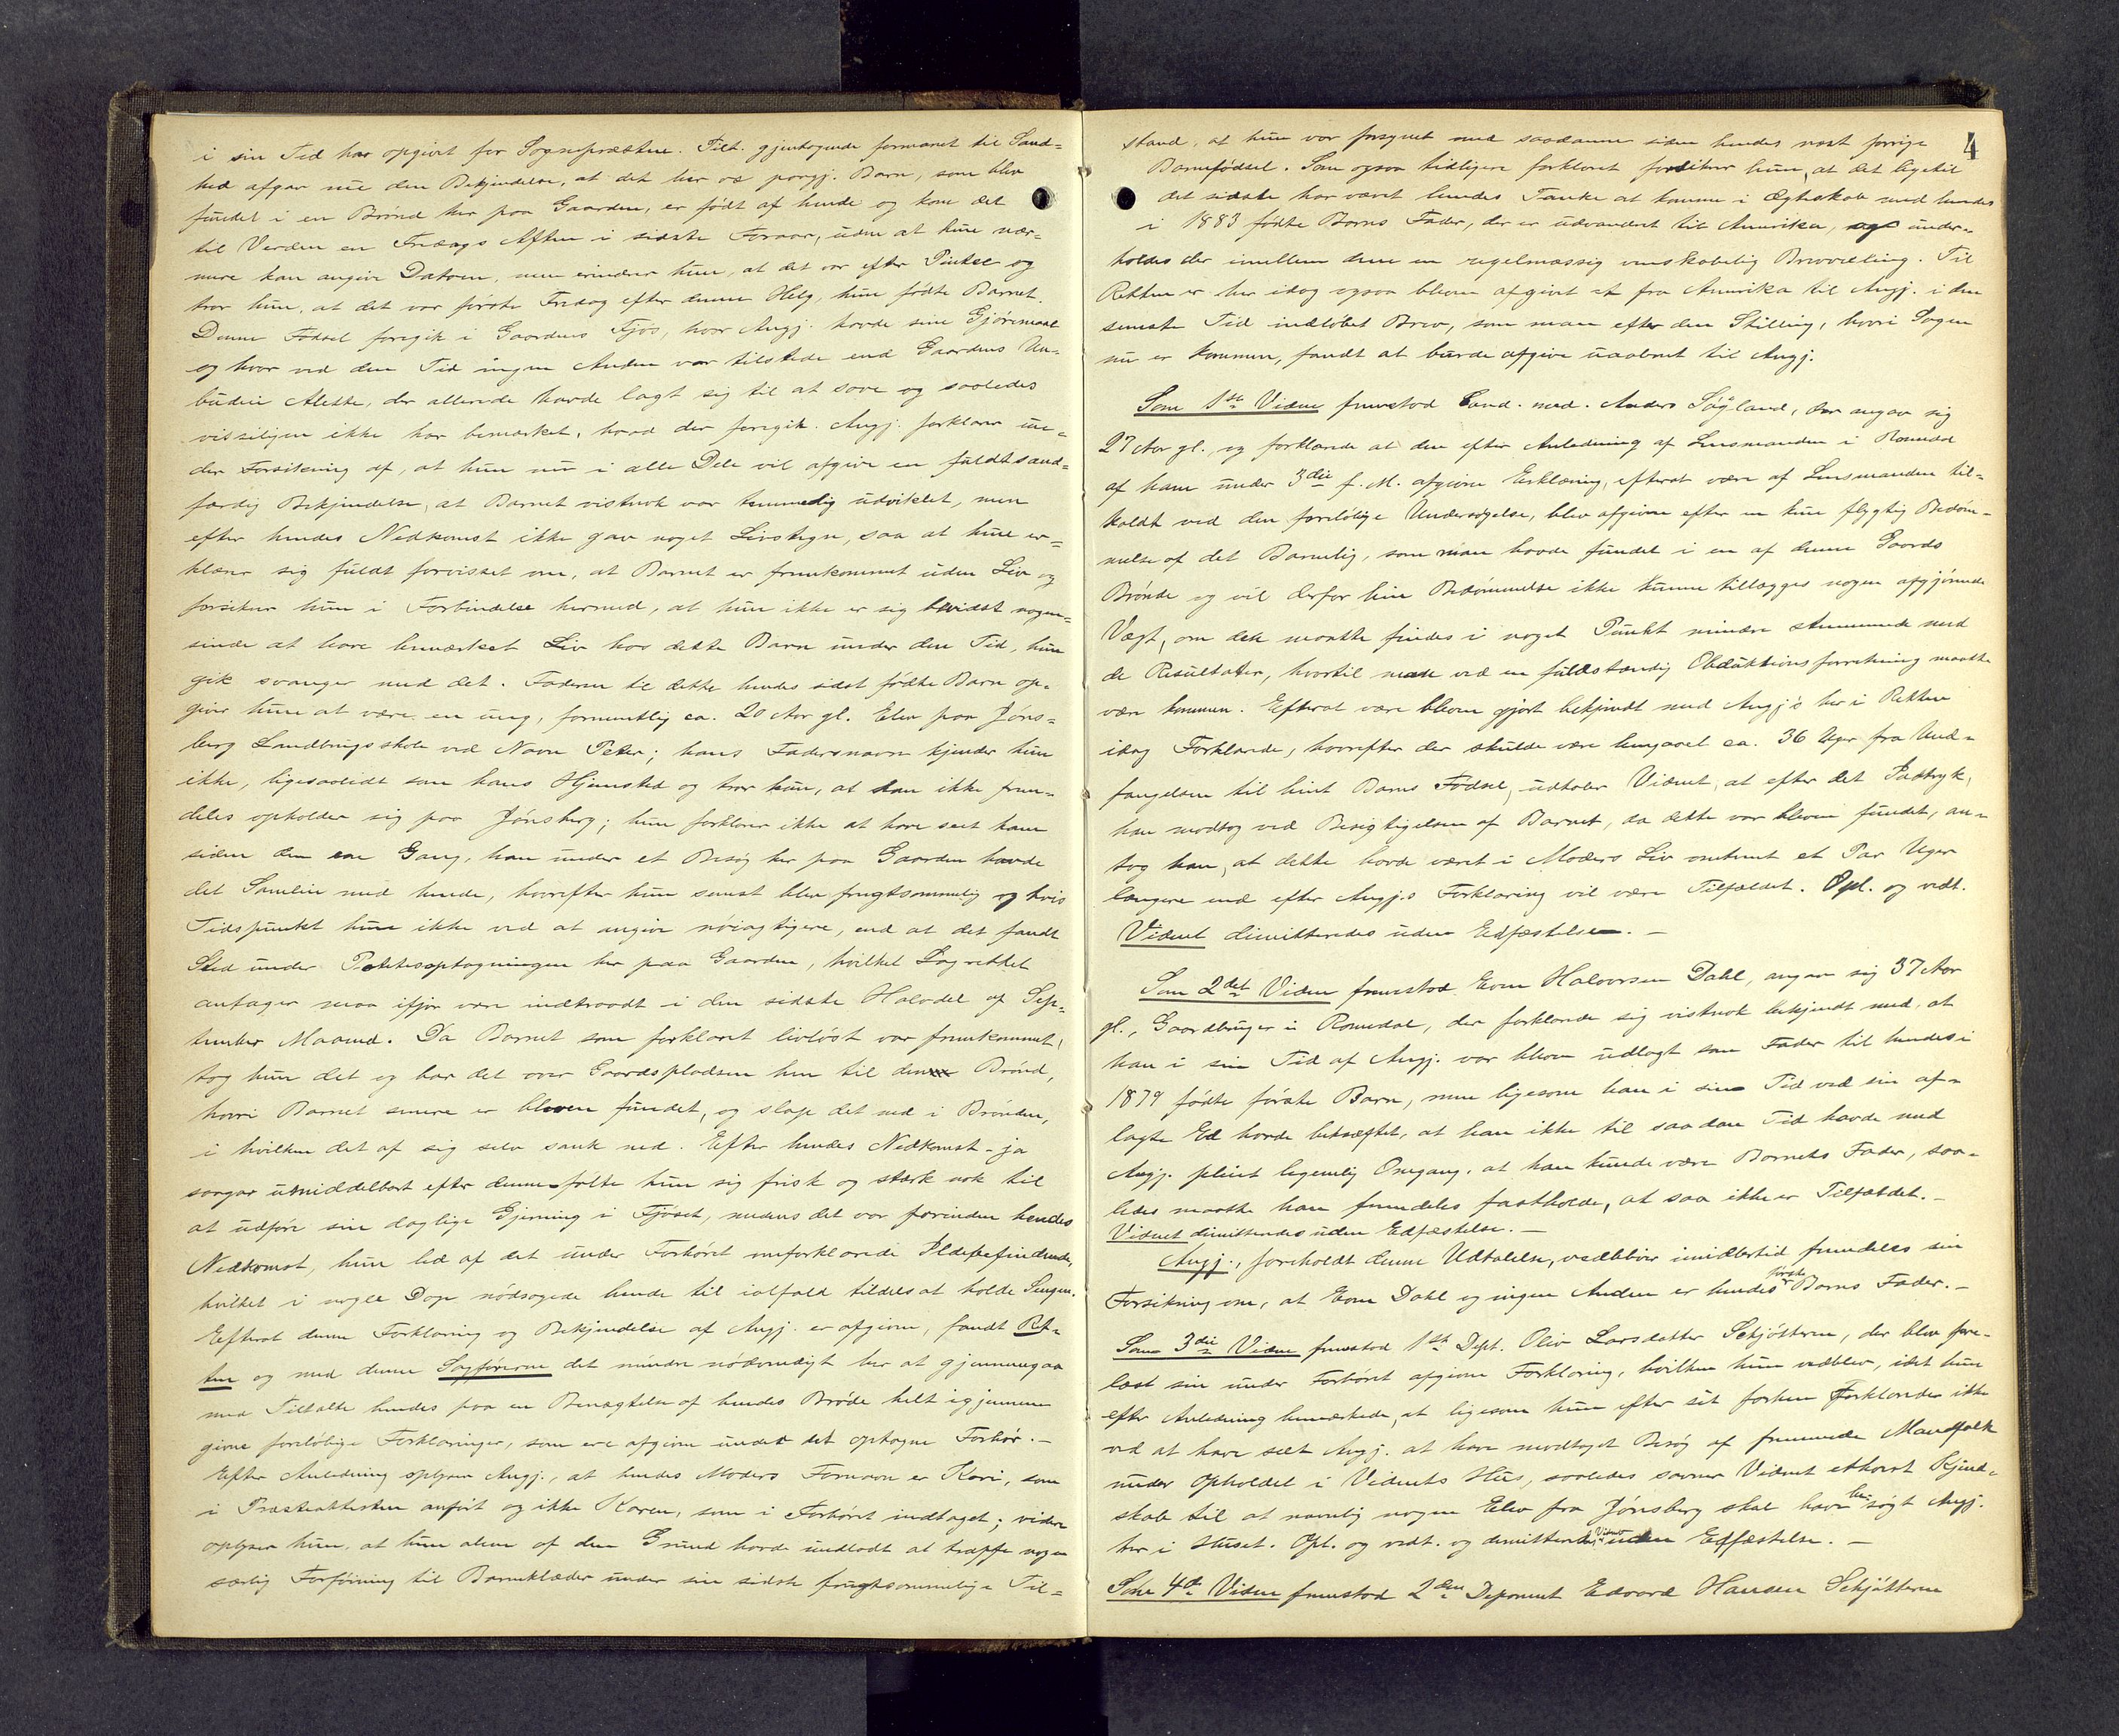 i sin Tid har opgivet for Sognepræsten. Tilt. gjentagende formanet til Sand=
hed afgav nu den Bekjendelse, at det her os paagj. Barn, som blev
fundet i en Brønd her paa Gaarden, er født af hende og kom det
til Verden en Fredags Aften i sidste Foraar, uden at hun nær-
mere kan angive Datoen, men erindrer hun, at det var efter Pintse og
tror hun, at det var første Fredag efter denne Helg, hun fødte Barnet.
Denne Fødsel foregik i Gaardens Fjøs, hvor Angj. havde sine Gjøremaal
og hvor ved den Tid ingen Anden var tilstede end Gaardens Un-
budeie Alette, der allerede havde lagt sig til at sove og saaledes
visseligen ikke har bemærket, hvad der foregik. Angj. forklarer un-
der Forsikring af, at hun nu i alle Dele vil afgive en fuldt sand=
færdig Bekjendelse, at Barnet vistnok var temmelig udviklet, men
efter hendes Nedkomst ikke gav noget Livstegn, saa at hun er=
klærer sig fuldt forvisset om, at Barnet er fremkommet uden Liv og
forsikrer hun i Forbindelse hermed, at hun ikke er sig bevidst nogen=
sinde at have bemærket Liv hos dette Barn under den Tid, hun
gik svanger med det. Faderen til dette hendes sidst fødte Barn op-
giver hun at være en ung, formentlig ca. 20 Aar gl. Elev paa Jøns=
berg Landbrugsskole ved Navn Peter; hans Fadersnavn kjender hun
ikke, ligesaalidt som hans Hjemsted og tror hun, at han ikke frem-
deles opholder sig paa Jønsberg; hun forklarer ikke at have seet ham
siden den ene Gang, han under et Besøg her paa Gaarden havde
det Samleie med hende, hvorefter hun senest blev frugtsommelig og hvis
Tidspunkt hun ikke ved at angive nøiagtigere, end at det fandt
Sted under Potetesoptagningen her paa Gaarden, hvilket Lagrettet
antager maa ifjor være indtraadt i den sidste Halvdel af Sep-
tember Maaned. Da Barnet som forklaret livløst var fremkommet,
tog hun det og bar det over Gaardspladsen hen til den Brønd,
hvori Barnet senere er bleven fundet, og slap det ned i Brønden,
i hvilken det af sig selv sank ned. Efter hendes Nedkomst - ja
sogar umiddelbart efter denne følte hun sig frisk og stærk nok til
at udføre sin daglige Gjerning i Fjøset, medens det var forinden hendes
Nedkomst, hun led af det under Forhøret omforklarede Ildebefindende,
hvilket i nogle Dage nødsagede hende til ialfald tildels at holde Sengen.
Efterat denne Forklaring og Bekjendelse af Angj. er afgiven, fandt Ret-
ten og med denne Sagførerne det mindre nødvendigt her at gjennemgaa
med Tiltalte hendes paa en Benægtelse af hendes Brøde helt igjennem
givne foreløbige Forklaringer, som ere afgivne under det optagne Forhør. -
Efter Anledning oplyser Angj., at hendes Moders Fornavn er Kari, som
i Præsteattesten anført og ikke Karen, som i Forhøret indtaget; videre
oplyser hun, at hun alene af den Grund havde undladt at træffe nogen
særlig Forføining til Barneklæder under sin sidste frugtsommelige Til-
4
stand, at hun var forsynet med saadanne siden hendes næst forrige
Barnefødsel. Som ogsaa tidligere forklaret forsikrer hun, at det ligetil
det sidste har været hendes Tanke at komme i Ægteskab med hendes
i 1883 fødte Barns Fader, der er udvandret til Amerika, og under-
holdes der imellem dem en regelmæssig venskabelig Brevvexling. Til
Retten er her idag ogsaa bleven afgivet et fra Amerika til Angj. i den
seneste Tid indløbet Brev, som man efter den Stilling, hvori Sagen
nu er kommen, fandt at burde afgive uaabnet til Angj.
Som 1ste Vidne fremstod Cand. med. Anders Søyland, der angav sig
27 Aar gl. og forklarede at den efter Anledning af Lensmanden i Romedal
af ham under 3die f. M. afgivne Erklæring, efterat være af Lensmanden til=
kaldt ved den foreløbige Undersøgelse, blev afgiven efter en kun flygtig Bedøm-
melse af det Barnelig, som man havde fundet i en af denne Gaards
Brønde og vil derfor hin Bedømmelse ikke kunne tillægges nogen afgjørende
Vægt, om den maatte findes i noget Punkt mindre stemmende med
de Resultater, hvortil man ved en fuldstændig Obduktionsforretning maatte
være kommen. Efterat være bleven gjort bekjendt med Angj's her i Retten
idag Forklarede, hvorefter der skulde være hengaaet ca. 36 Uger fra Und-
fangelsen til hint Barns Fødsel, udtaler Vidnet, at efter det Indtryk,
han modtog ved Besigtigelsen af Barnet, da dette var bleven fundet, an-
tog han, at dette havde været i Moders Liv omtrent et Par Uger
længere end efter Angj.s Forklaring vil være Tilfældet. Opl. og vedt.
Vidnet dimitteredes uden Edfæstelse. -
Som 2det Vidne fremstod Even Halvorsen Dahl, angav sig 37 Aar
gl., Gaardbruger i Romedal, der forklarede sig vistnok bekjendt med, at
han i sin Tid af Angj. var bleven udlagt som Fader til hendes i
1879 fødte første Barn, men ligesom han i sin Tid ved sin af-
lagte Ed havde bekræftet, at han ikke til saadan Tid havde med
Angj. pleiet legemlig Omgang, at han kunde være Barnets Fader, saa-
ledes maatte han fremdeles fastholde, at saa ikke er Tilfældet. -
Vidnet dimitteredes uden Edfæstelse. -
Angj., foreholdt denne Udtalelse, vedbliver imidlertid fremdeles sin
Forsikring om, at Even Dahl og ingen Anden er hendes første Barns Fader. -
Som 3die Vidne fremstod 1ste Dept. Oliv Larsdatter Schjøtteren, der blev fore-
læst sin under Forhøret afgivne Forklaring, hvilken hun vedblev, idet hun
efter Anledning bemærkede, at ligesom hun efter sit forhen Forklarede ikke
ved at have seet Angj. at have modtaget Besøg af fremmede Mandfolk
under Opholdet i Vidnets Hus, saaledes savner Vidnet ethvert Kjend-
skab til at navnlig nogen Elev fra Jønsberg skal have besøgt Angj.
her i Huset. Opl. og vedt. og dimitteredes Vidnet uden Edfæstelse. -
Som 4de Vidne fremstod 2den Deponent Edvard Hansen Schjøtteren